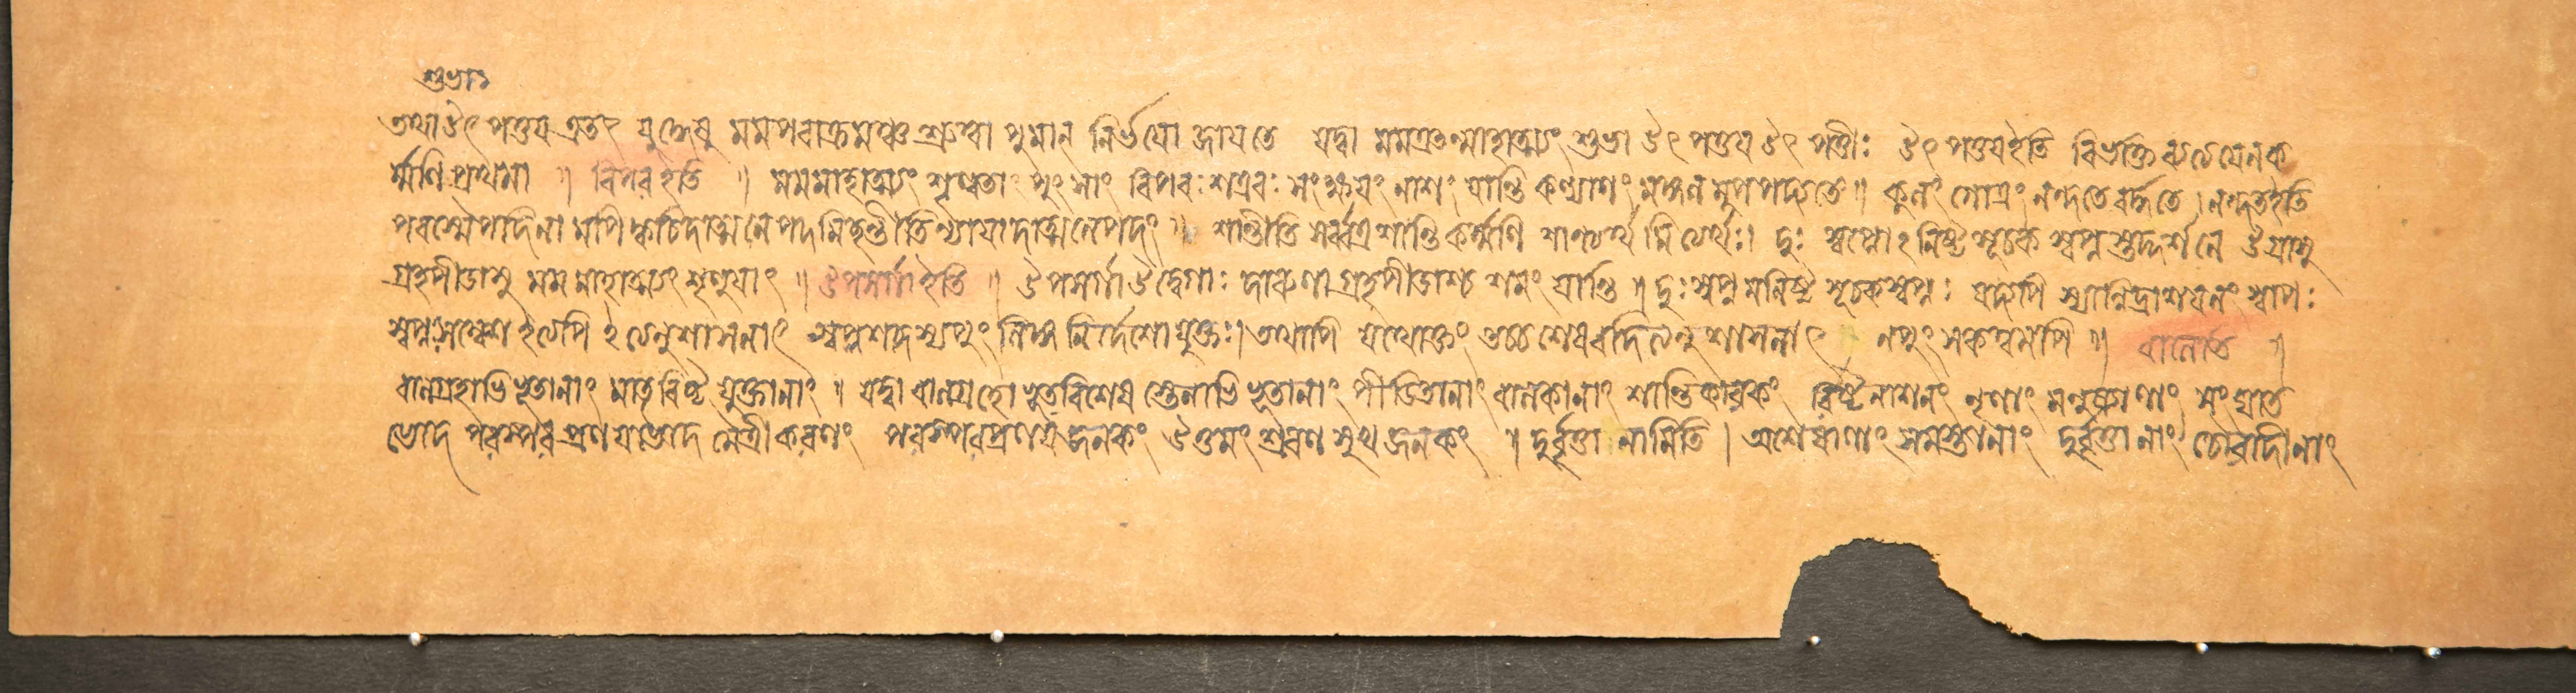 শুভাঃ
তথা উৎপত্তয় এতৎ যুদ্ধেষু মমপরাক্রমঞ্চ শ্রুত্বা পুমান নির্ভযো জাযতে যদ্বা মমএতন্মাহাত্ম্যং শুভা উৎপত্তয উৎপত্তীঃ উৎপত্তয ইতি বিভক্তি ব্যত্যযেনক
র্ম্মণি প্রথমা ॥ রিপবইতি ॥ মমমাহাত্ম্যং শৃণ্বতাং পুংসাং রিপবঃ শত্রবঃ সংক্ষযং নাশং যান্তি কল্যাণং মঙ্গল মুপপদ্যতে ॥ কুলং গোত্রং নন্দতে বর্দ্ধতে । নন্দতইতি
পরস্মৈপদিনা মপি ক্বচিদাত্মনেপদমিচ্ছন্তীতি ন্যাযাদাত্মনেপদং ॥ শান্তীতি সর্ব্বত্র শান্তি কর্ম্মণি শান্ত্যর্থ মিত্যর্থঃ। দুঃস্বপ্নোঽনিষ্ট সূচক স্বপ্নস্তদ্দর্শনে উগ্রাসু
গ্রহপীডাসু মম মাহাত্ম্যং শৃণুযাৎ ॥ উপসর্গাইতি ॥ উপসর্গা উদ্বেগাঃ দারুণা গ্রহপীডাশ্চ শমং যান্তি ॥ দুঃস্বপ্ন মনিষ্ট সূচকস্বপ্নঃ যদ্যপি স্যান্নিদ্রাশযনং স্বাপঃ
স্বপ্নসম্বেশ ইত্যপি ইত্যনুশাসনাৎ স্বপ্নশব্দস্য পুংলিঙ্গ নির্দ্দেশো যুক্তঃ। তথাপি যথোক্তং তচ্চ শেষবদিত্যনুশাসনাৎ নপুংসকত্বমপি ॥ বালেতি ॥
বালগ্রহাভিভূতানাং মাতৃরিষ্ট যুক্তানাং ॥ যদ্বা বালগ্রহো ভূতবিশেষ স্তেনাভিভূতানাং পীডিতানাং বালকানাং শান্তিকারকং রিষ্টনাশনং নৃণাং মনুষ্যাণাং সংঘাত
ভেদে পরস্পর প্রণযাভেদে মৈত্রীকরণং পরস্পরপ্রণয জনকং উত্তমং শ্রবণ সুখ জনকং ॥ দুর্বৃত্তা নামিতি । অশেষাণাং সমস্তানাং দুর্বৃত্তানাং চৌরাদীনাং